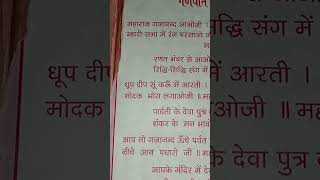 गणपति
महाराज गजानन्द आओजी ।
म्हारी सभा में रंग बरसाओ
रणत भंवर से आओ
रिद्धि-सिद्धि संग में
धूप दीप सूं करूँ में आरती ।
मोदक भोग लगाओजी ॥
पार्वती के देवा पुत्र
शंकर के मन भाव
आप तो गजानन्द ऊँचे पर्वत
नीचे आन पधारो जी ॥
आपके मंदिर में दे
द्धि संग में
में आरती ।
गाओजी ॥ मह
के देवा पुत्र